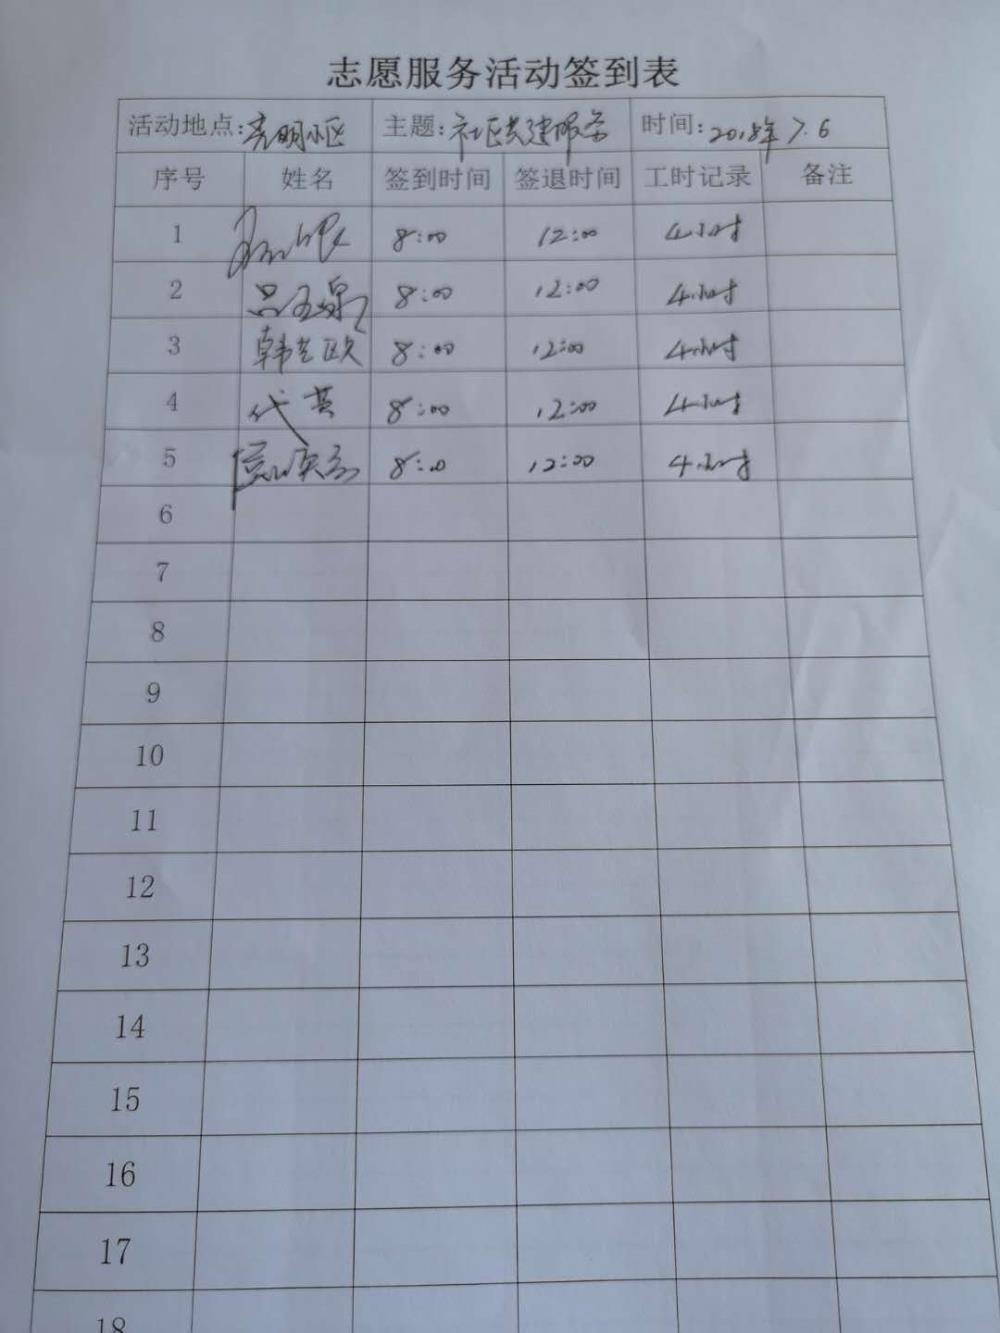 志愿服务活动签到表
活动地点:亮明小区 主题:社区共建服务 时间:2018年7.6
序号 姓名 签到时间 签退时间 工时记录 备注
1 8:00 12:00 4小时
2 8:00 12:00 4小时
3 韩艺欧 8:00 12:00 4小时
4 代英 8:00 12:00 4小时
5 8:00 12:00 4小时
6
7
8
9
10
11
12
13
14
15
16
17
18